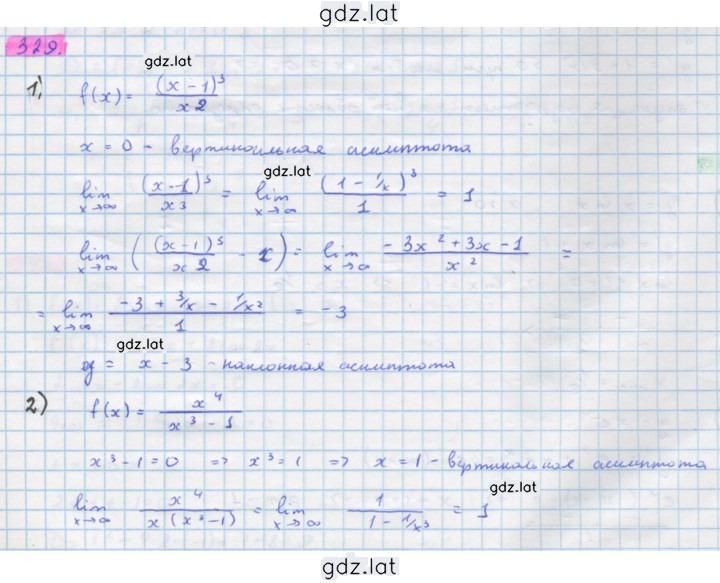 gdz.lat
329.
gdz.lat
1) f(x) = (x - 1)³ / x2
x = 0 - вертикальная асимптота
gdz.lat
lim x→∞ (x-1)³ / x3 = lim x→∞ (1 - 1/x)³ / 1 = 1
lim x→∞ ((x-1)³ / x2 - x) = lim x→∞ (-3x² + 3x - 1) / x² =
= lim x→∞ (-3 + 3/x - 1/x²) / 1 = -3
gdz.lat
y = x - 3 - наклонная асимптота
2) f(x) = x⁴ / (x³ - 1)
x³ - 1 = 0 => x³ = 1 => x = 1 - вертикальная асимптота
gdz.lat
lim x→∞ x⁴ / x(x³-1) = lim x→∞ 1 / (1 - 1/x³) = 1
gdz.lat